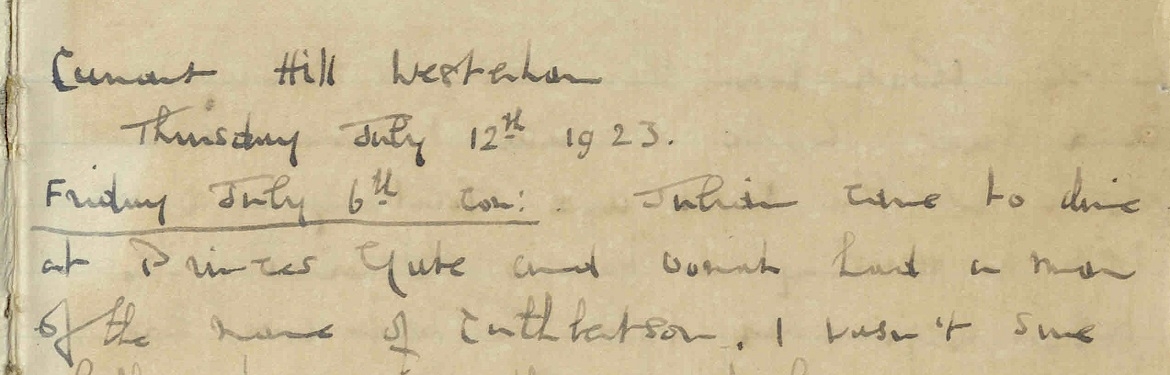 Currant Hill Westerham
Thursday July 12th 1923.
Friday July 6th con: Julian came to dine
at Princes Gate and had a man
of the name of Cuthbertson. I wasn't sure